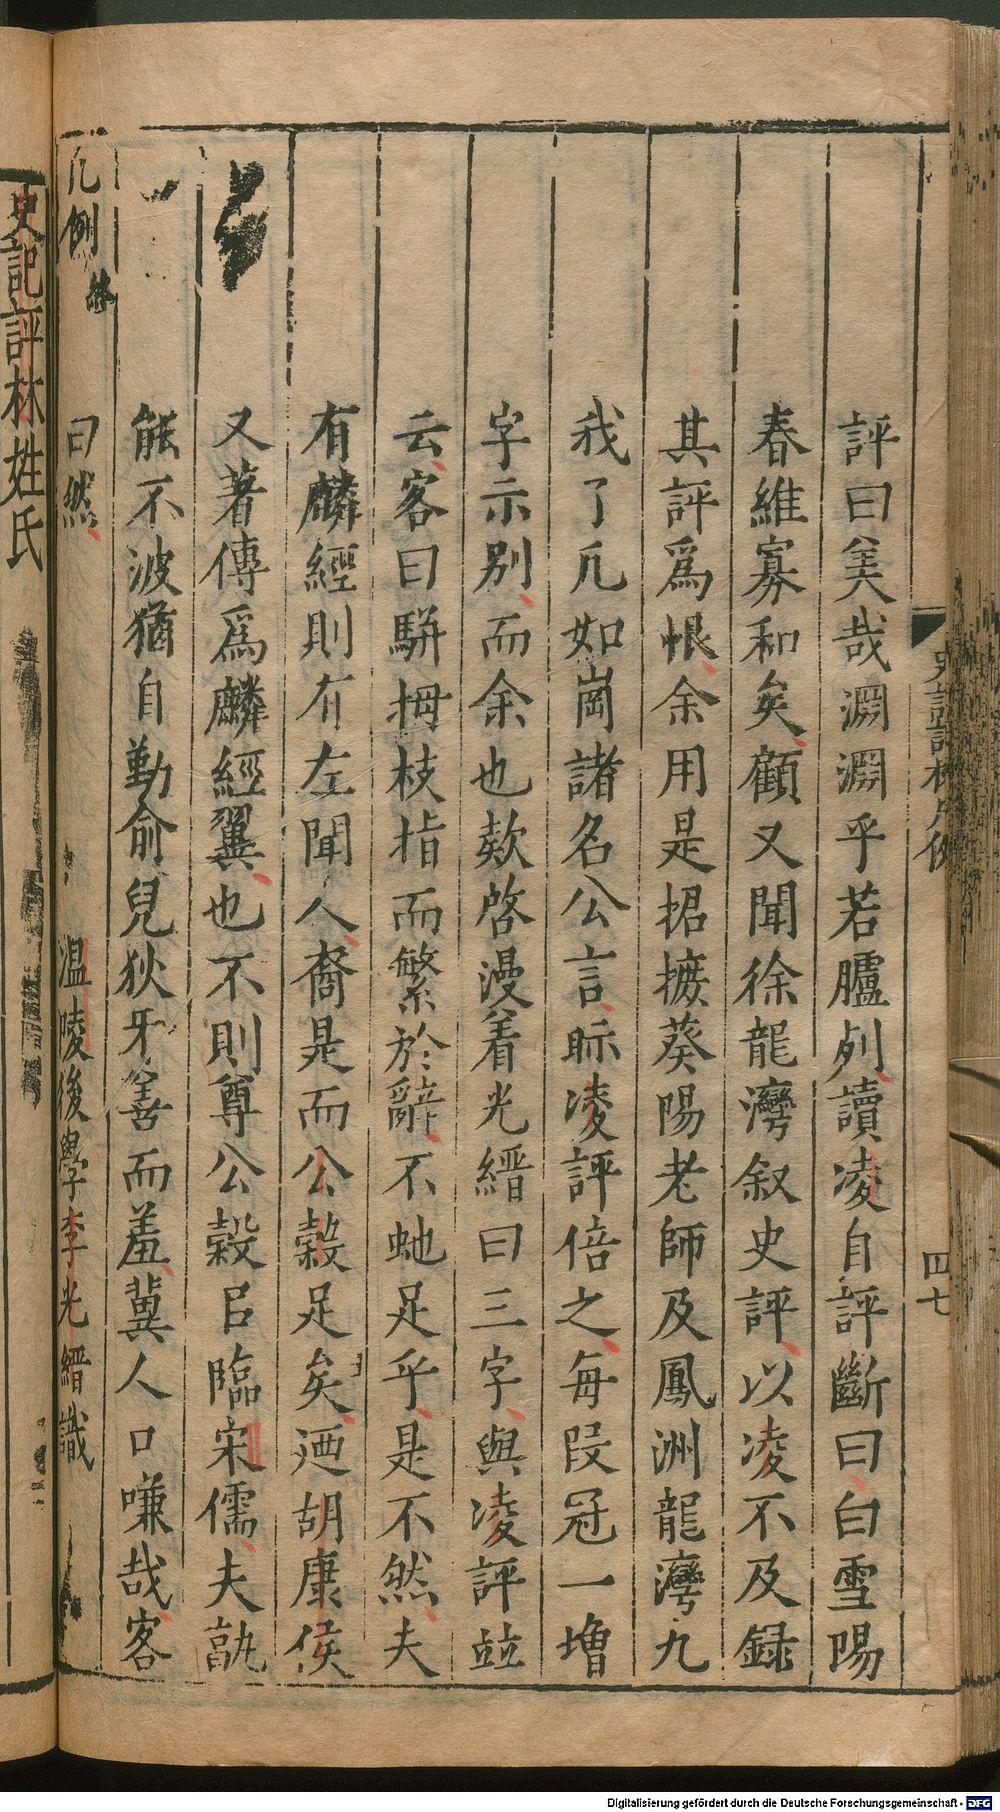 史記評林凡例
四七
評曰美哉淵淵乎若臚列讀凌自評斷曰白雪陽
春維寡和矣顧又聞徐龍灣叙史評以凌不及録
其評爲恨余用是捃摭葵陽老師及鳳洲龍灣九
我了凡如崗諸名公言眎凌評倍之每段冠一增
字示别而余也欵啓漫着光縉曰三字與凌評竝
云客曰駢拇枝指而繁於辭不虵足乎是不然夫
有麟經則有左聞人裔是而公穀足矣迺胡康侯
又著傳爲麟經翼也不則尊公穀㠯臨宋儒夫孰
能不波猶自勤俞兒狄牙善而羞兾人口嗛哉客
曰然
温陵後學李光縉識
凡例終
史記評林姓氏
Digitalisierung gefördert durch die Deutsche Forschungsgemeinschaft - DFG